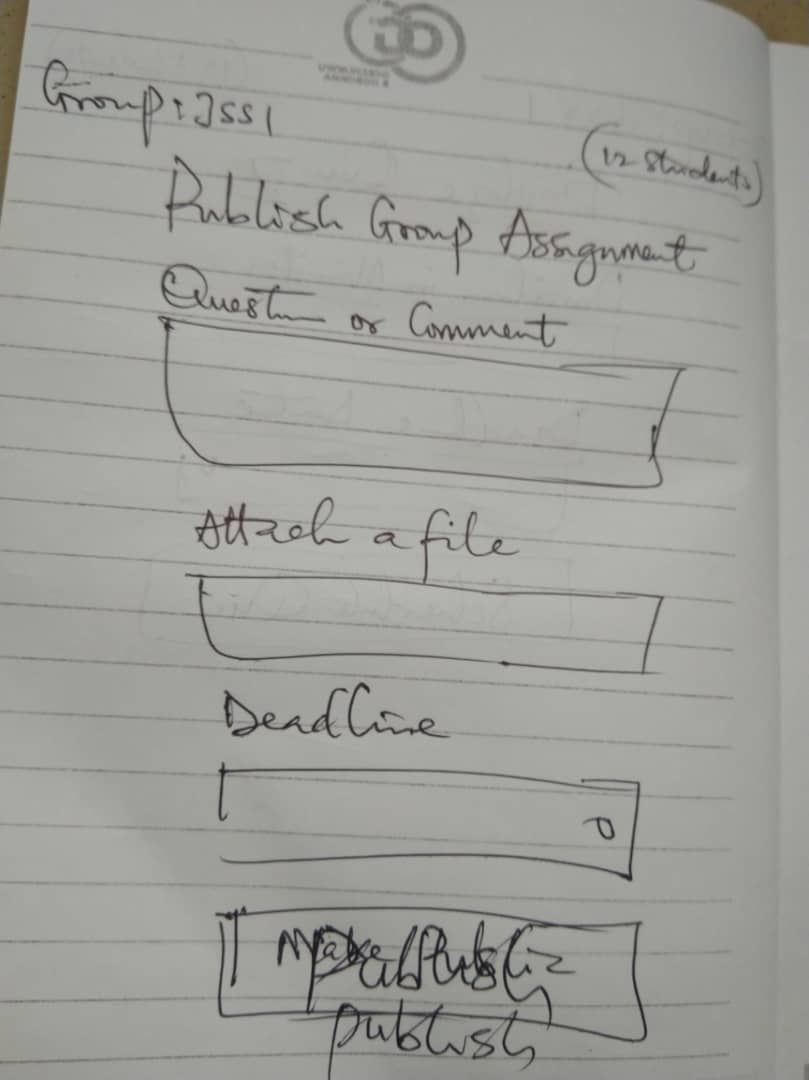 Group: JSS1
(12 Students)
Publish Group Assignment
Question or Comment
Attach a file
Deadline
Make Public
publish